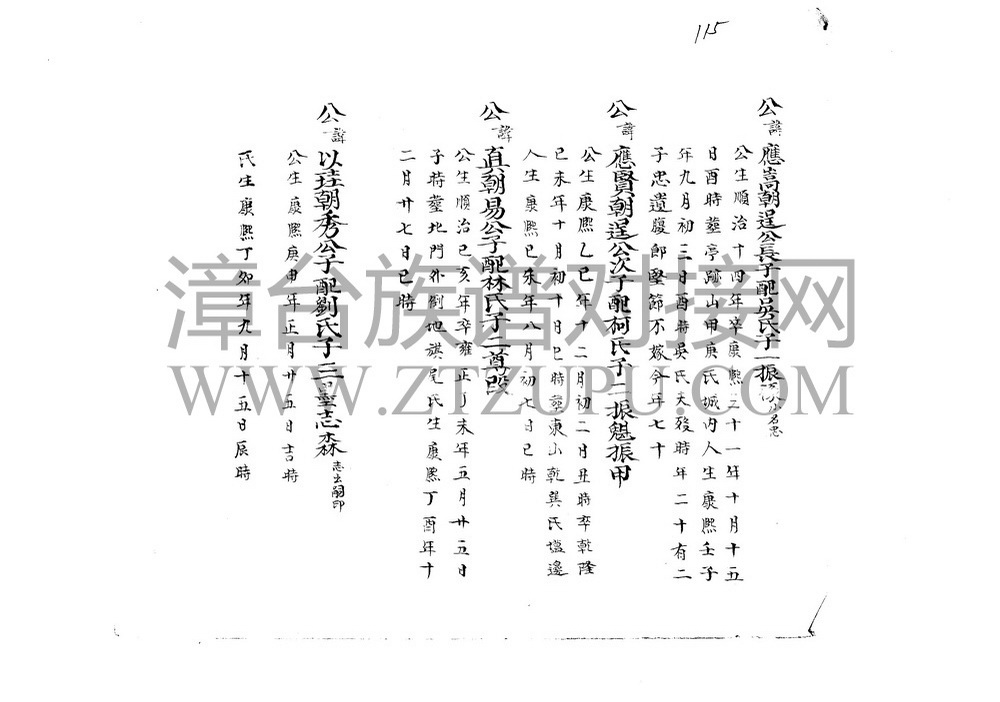 115
公諱應嵩朝逞公長子配吳氏子一振
公生順治十四年卒康熙三十一年十月十五
日酉時塟亭跡山甲庚氏城内人生康熙壬子
年九月初三日酉時吳氏夫歿時年二十有二
子忠遺腹郎堅節不嫁今年七十
公諱應賢朝逞公次子配柯氏子二振魁振甲
公生康熙乙巳年十二月初二日丑時卒乾隆
己未年十月初十日巳時塟東山乾巽氏墟邊
人生康熙己未年八月初七日巳時
公諱真朝易公子配林氏子二尊毀
公生順治己亥年卒雍正丁未年五月廿五日
子時塟北門外倒地旗尾氏生康熙丁酉年十
二月廿七日巳時
公諱以珪朝秀公子配劉氏子三墨志森志出嗣印
公生康熙庚申年正月廿五日吉時
氏生康熙丁卯年九月十五日辰時
漳台族谱对接网
WWW.ZTZUPU.COM